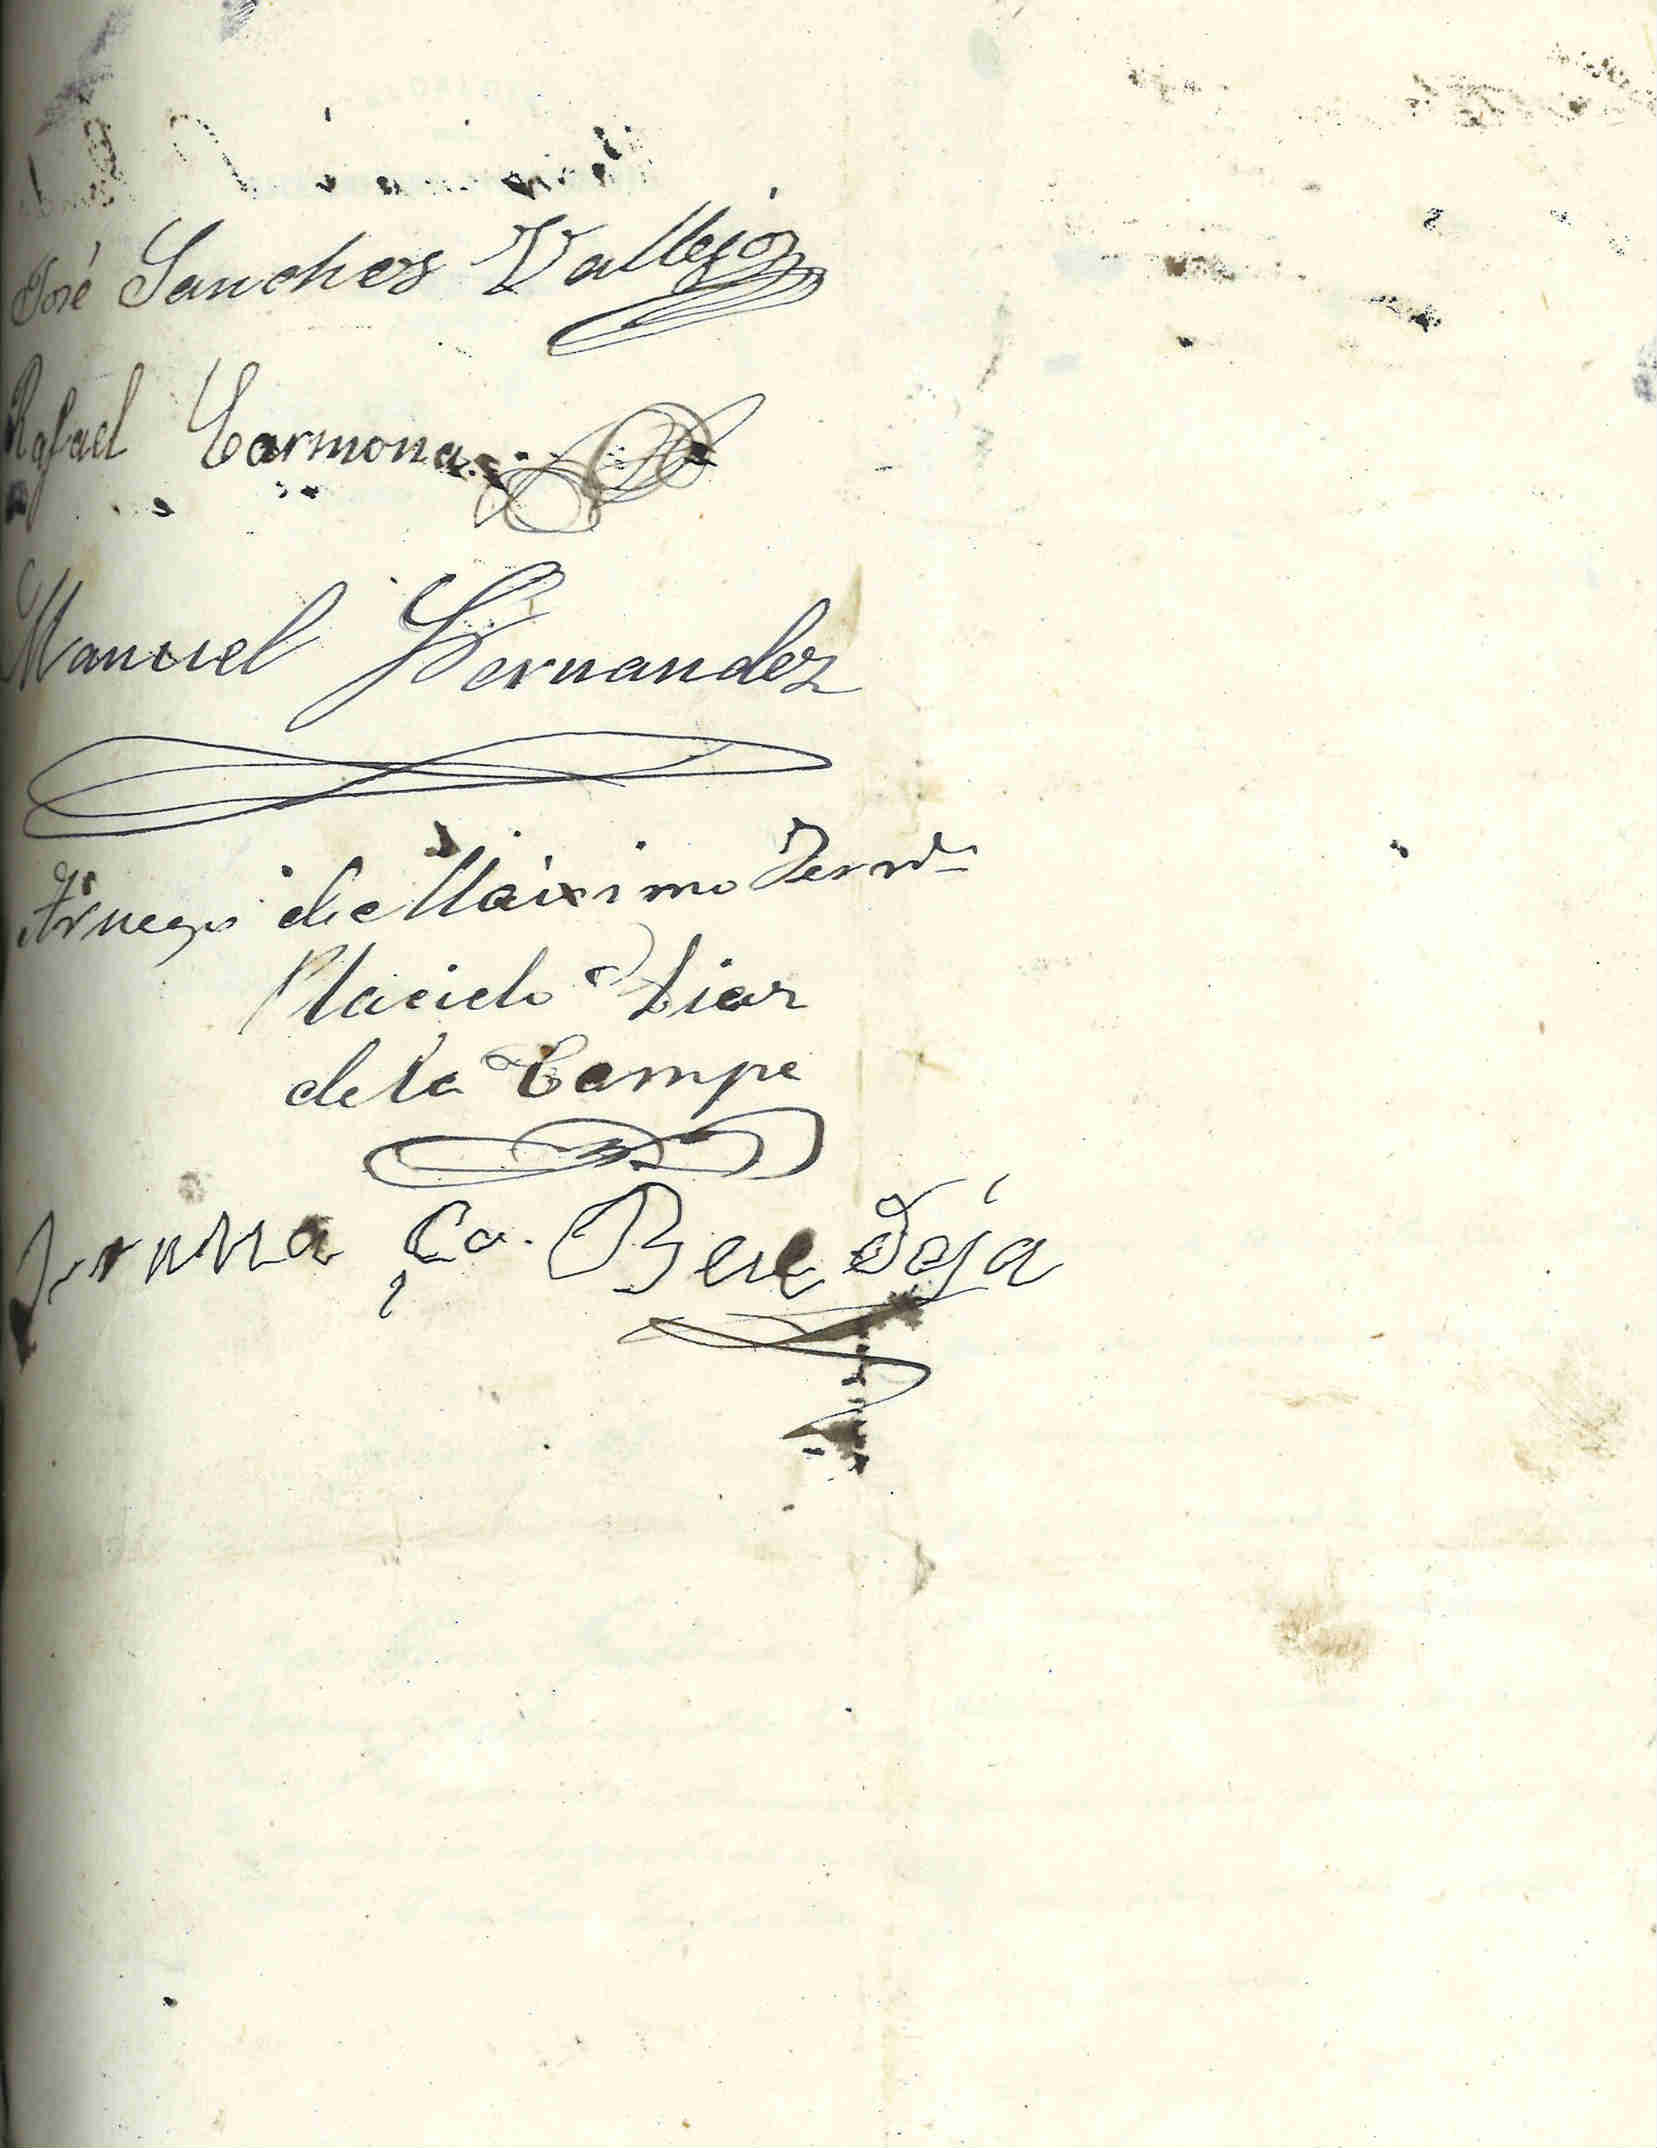 José Sanches Vallejo
Rafael Carmona
Manuel Hernandez
A ruego de Máximo Fernds
Placido Diaz
de la Campa
Ca. Bere Doja